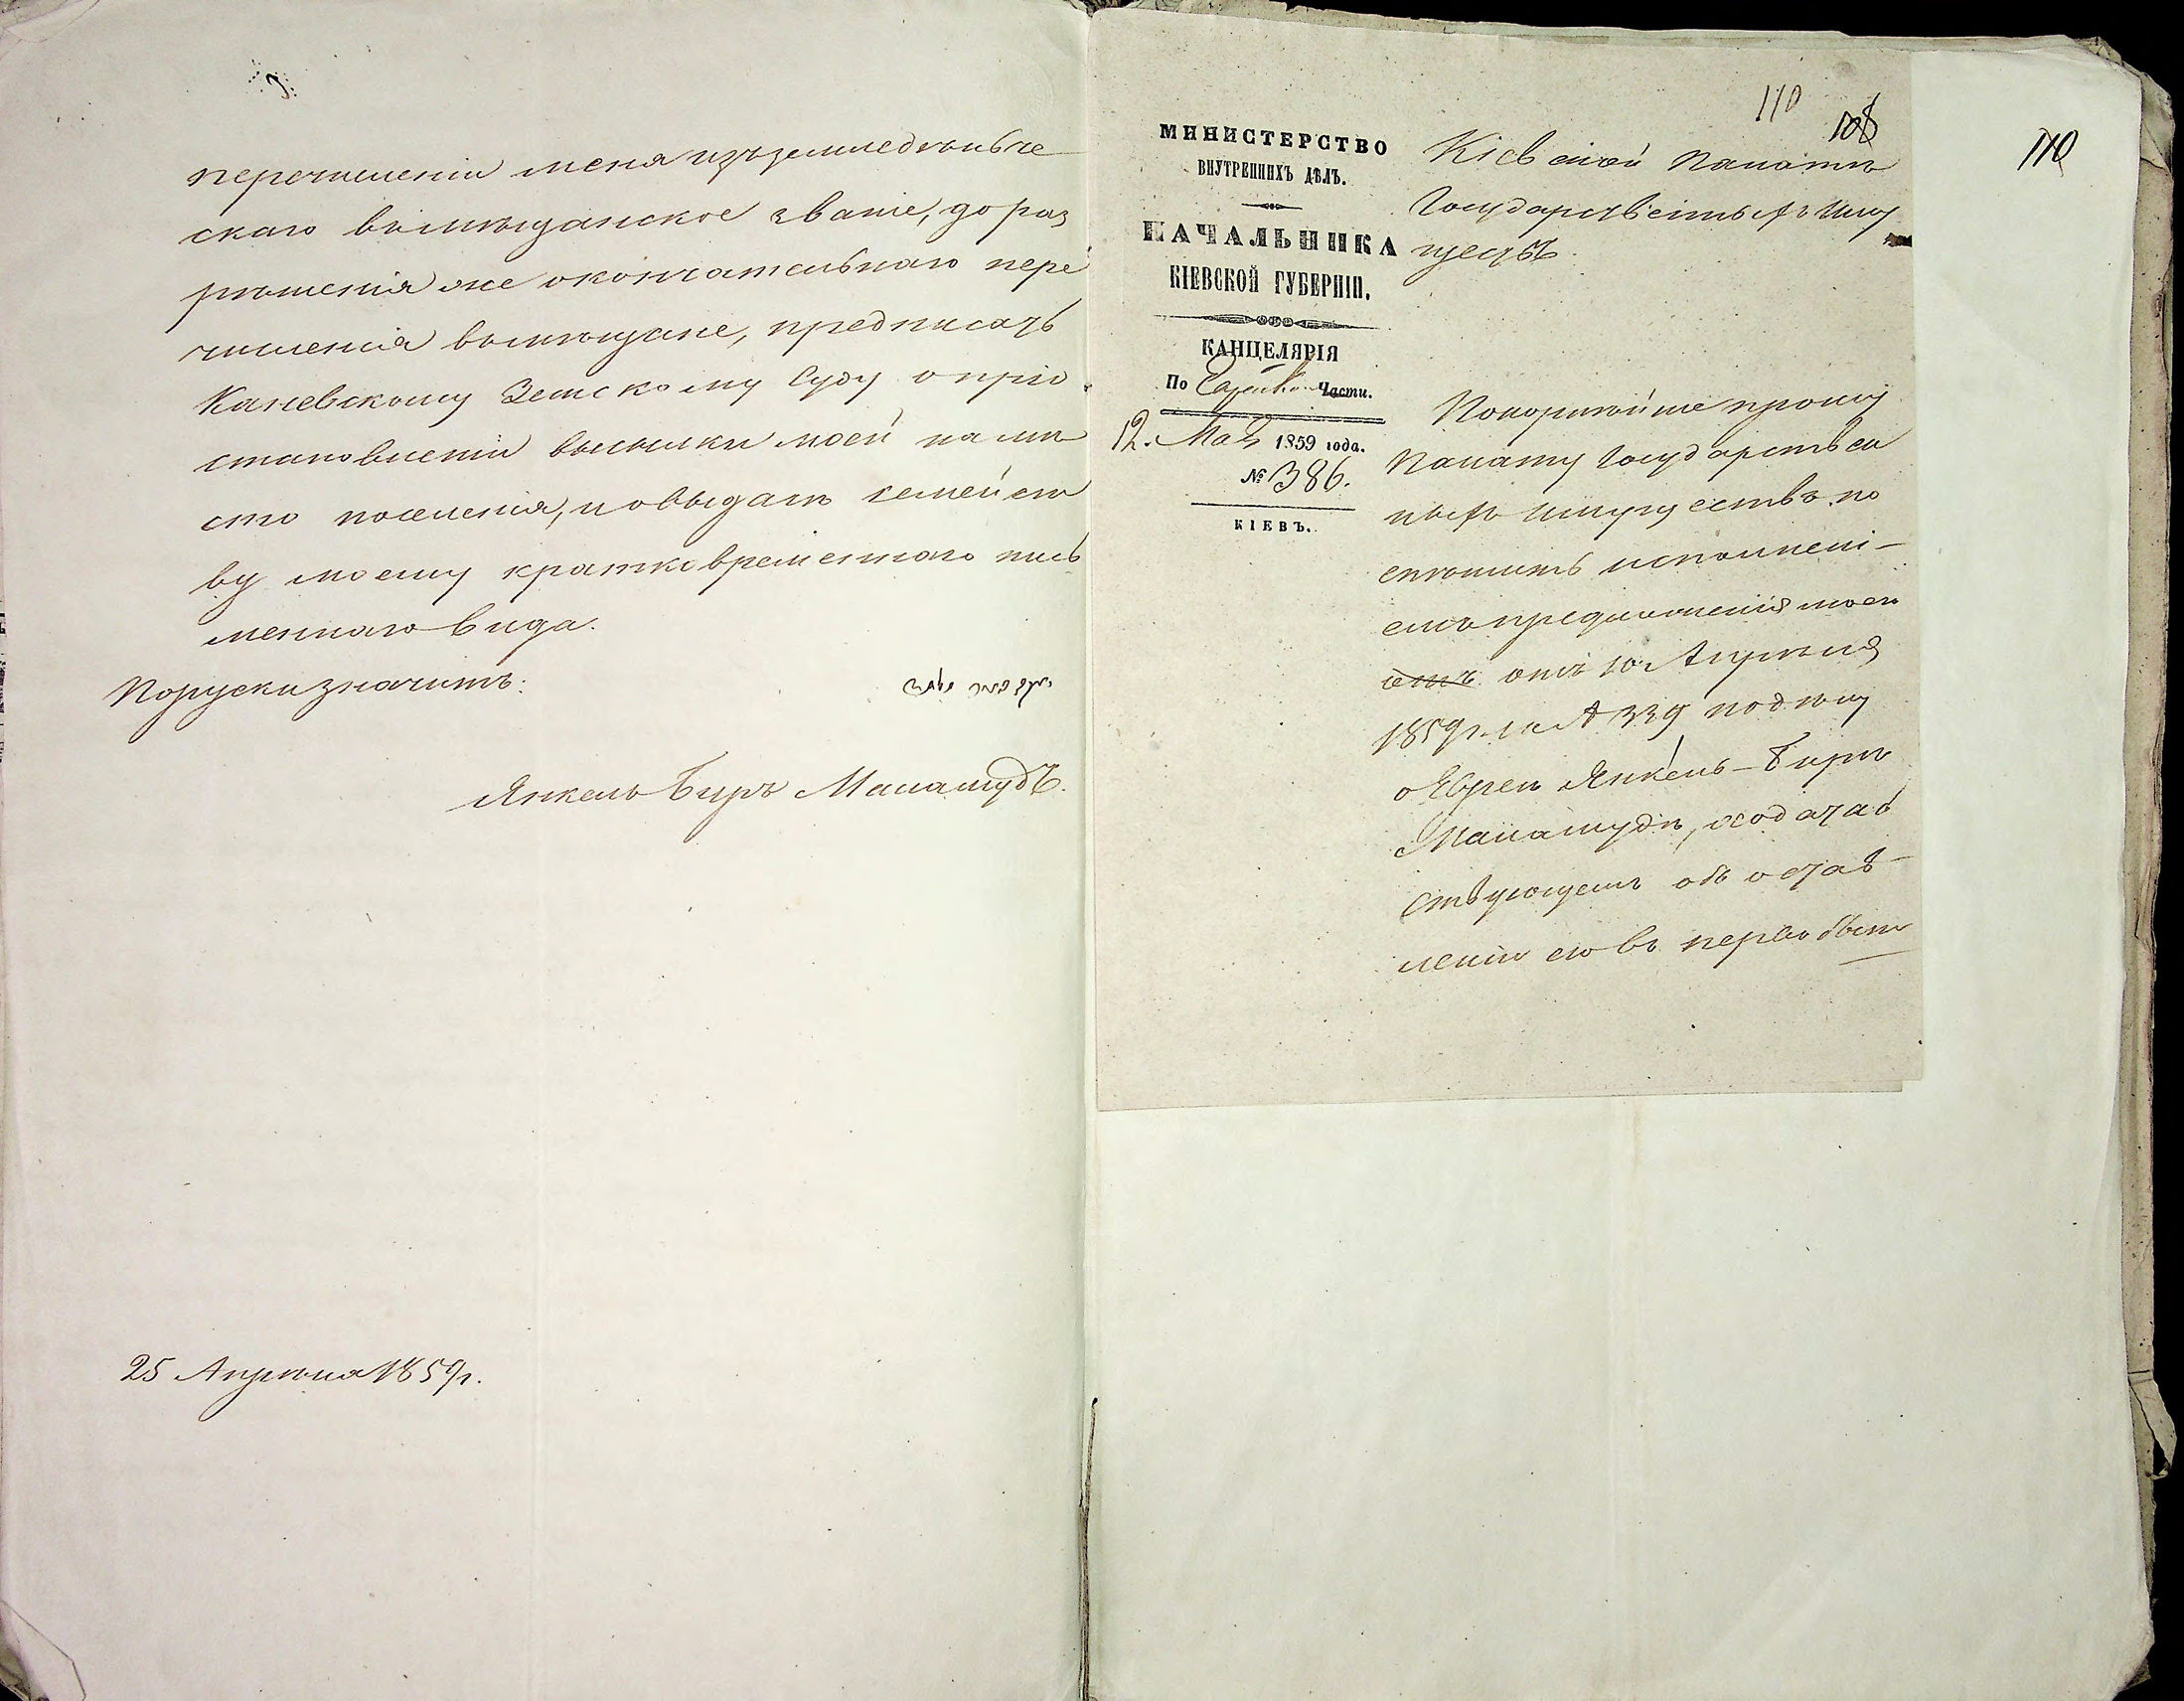 перечисленіи меня изъ земледѣльче
скаго въ мѣщанское званіе, до раз
рѣшенія же окончательнаго пере
численія въ мѣщане, предписать
Каневскому Земскому Суду о пріо
становленіи высылки моей на мѣ
сто поселенія, и о выдачѣ семейст
ву моему кратковременнаго пись
меннаго вида.
По руски значитъ:
Янкель Беръ Маламудъ.
25 Апрѣля 1859 г.
110
108
110
МИНИСТЕРСТВО
ВНУТРЕННИХЪ ДѢЛЪ.
НАЧАЛЬНИКА
КІЕВСКОЙ ГУБЕРНІИ.
КАНЦЕЛЯРІЯ
По Части.
12. Мая 1859 года.
№ 386.
КІЕВЪ.
Кіевской Палатѣ
Государственныхъ Иму
ществъ.
Покорнѣйше прошу
Палату Государствен
ныхъ Имуществъ по
спѣшить исполнені-
емъ предложенія моего
отъ 10 Апрѣля
1859 г. за № 339 по дѣлу
о Евреѣ Янкель-Берѣ
Маламудѣ, ходатай
ствующемъ объ остав-
леніи его въ первобыт